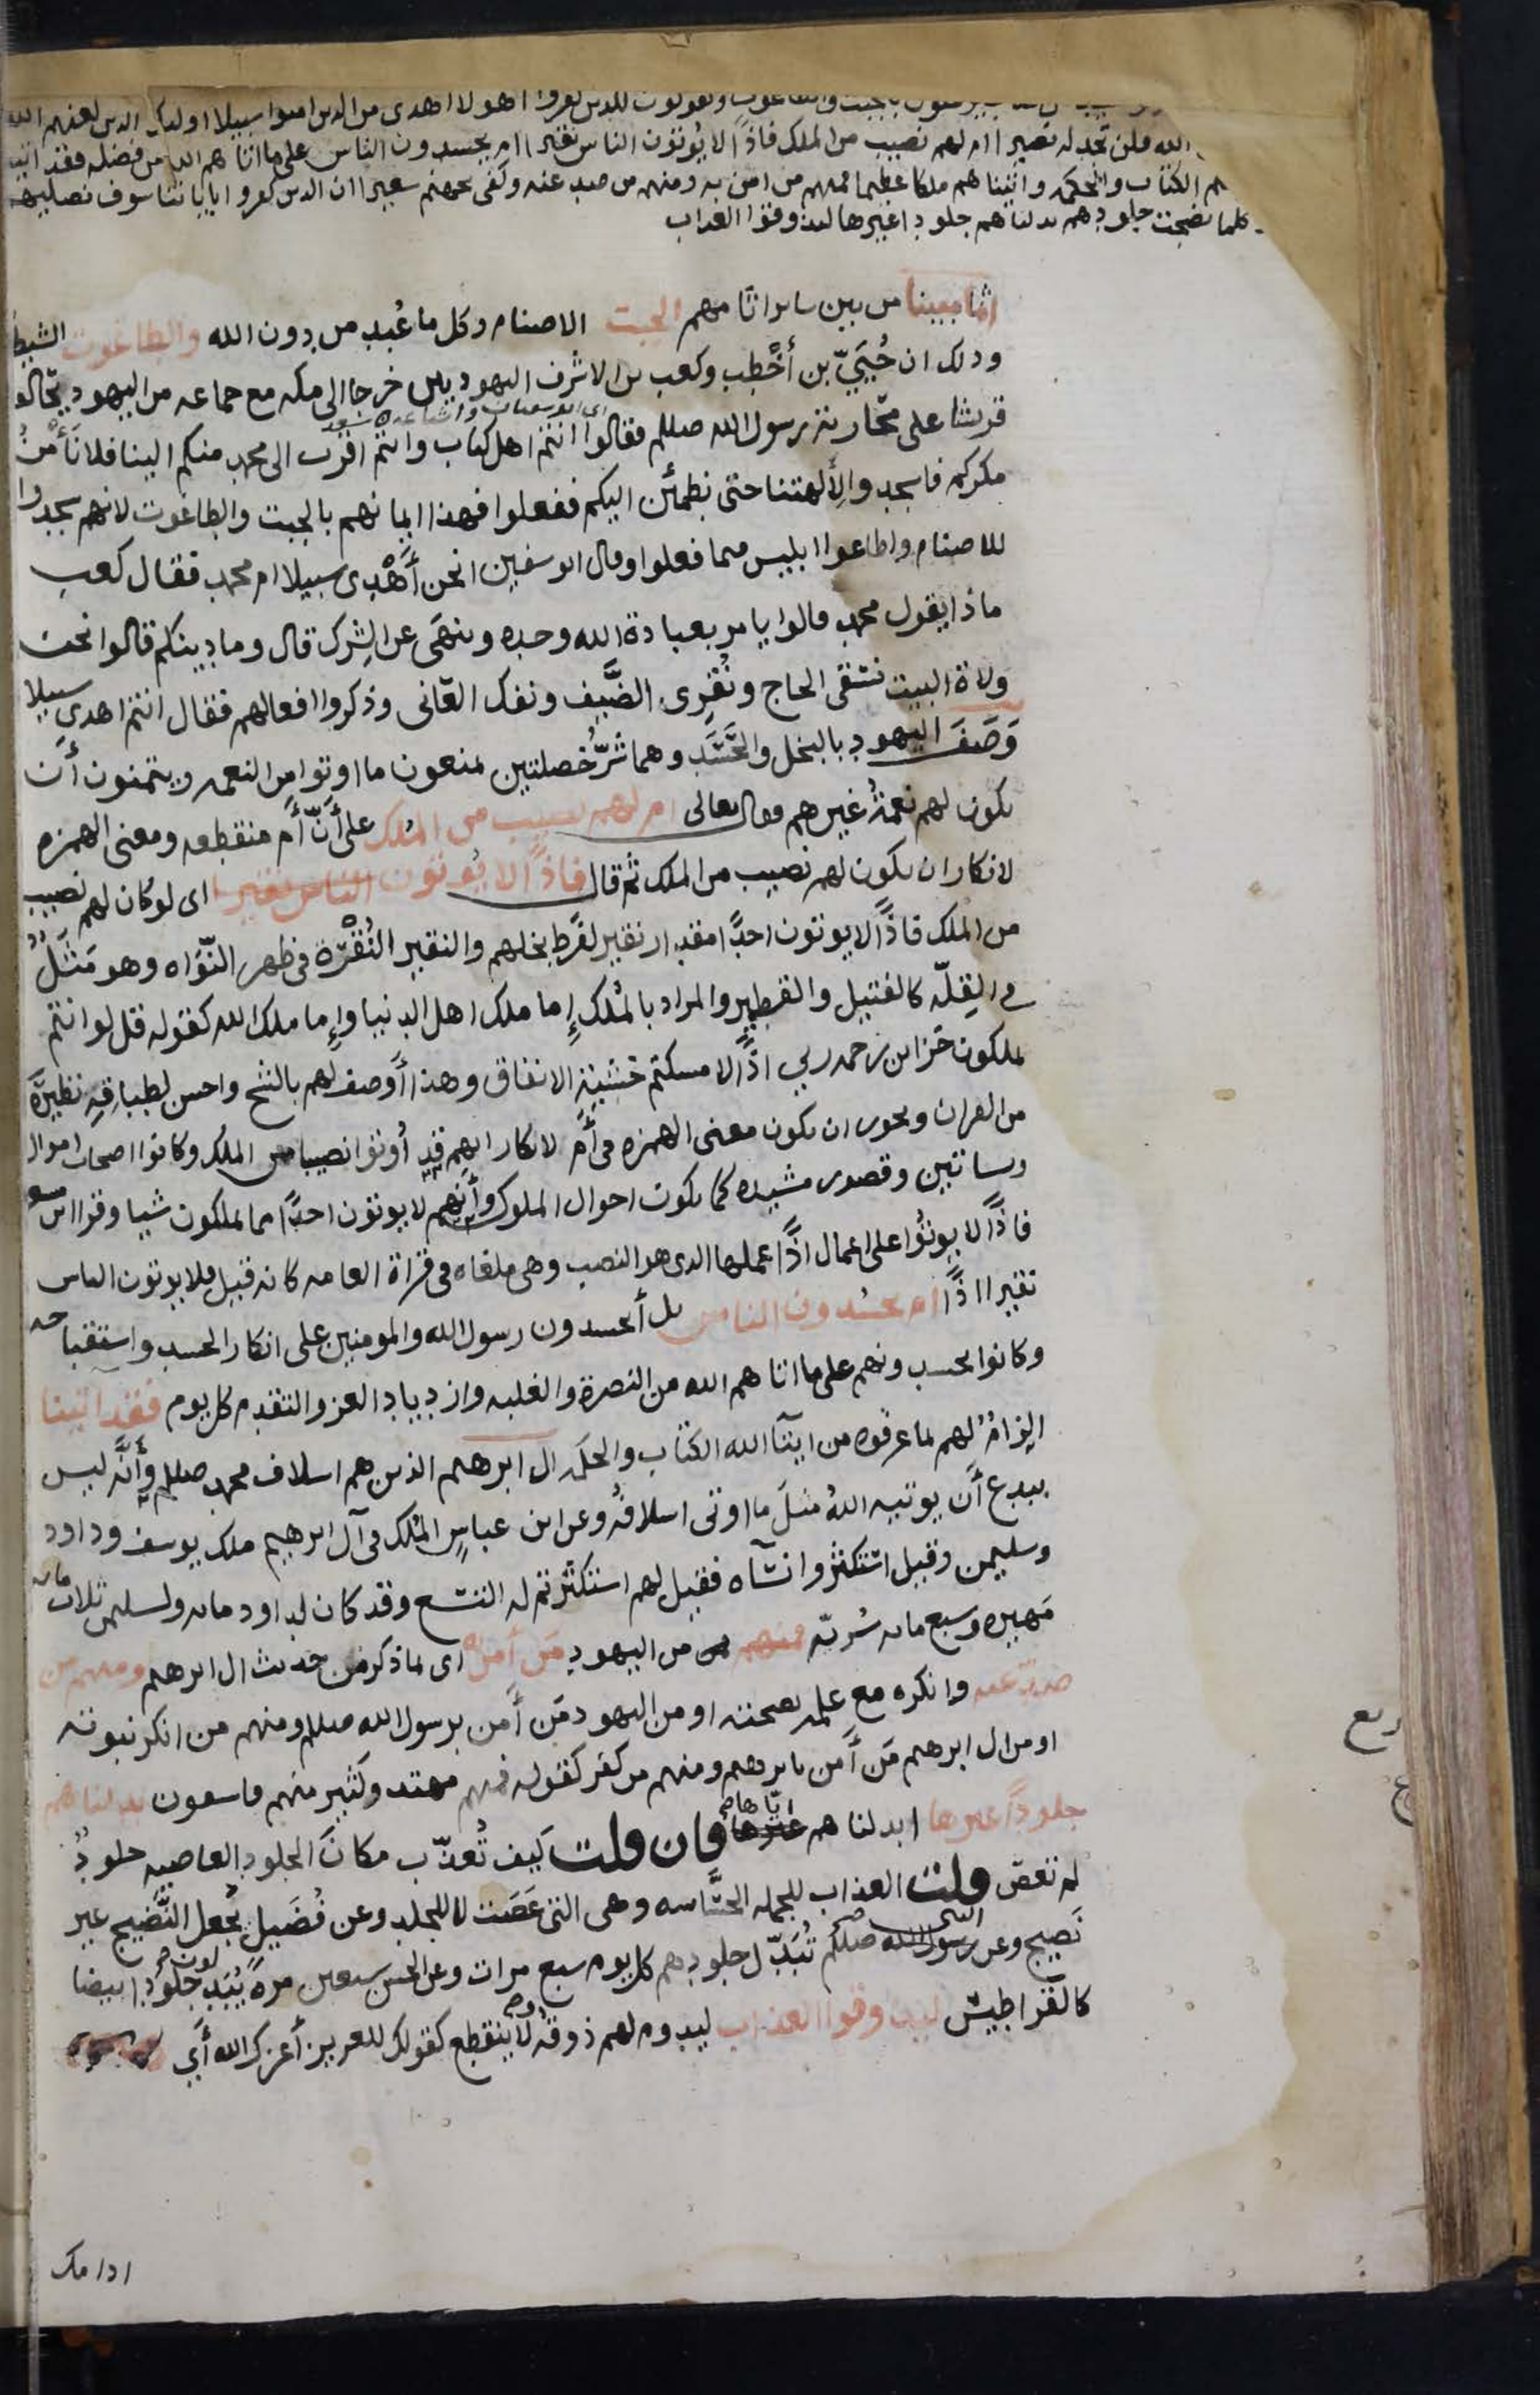 بالجبت والطاغوت ويقولون للذين كفروا اهولا اهدى من الذين امنوا سبيلا اوليك الذين لعنهم الله
الله فلن تجد له نصيرا ام لهم نصيب من الملك فاذًا لا يُوتون الناس نقيرا ام يحسدون الناس على ما اتاهم الله من فضله فقد اتينا
الكتاب والحكمه واتيناهم ملكا عظيما فمنهم من امن به ومنهم من صد عنه وكفى بجهنم سعيرا ان الذين كفروا باياتنا سوف نصليهم
كلما نضجت جلودهم بدلناهم جلودا غيرها ليذوقوا العذاب
اثما مبينا من بين ساير اثامهم الجبت الاصنام وكل ما عُبد من دون الله والطاغوت الشيط
وذلك ان حُيَيّ بن أَخْطب وكعب بن الاشرف اليهوديين خرجا الى مكه مع جماعه من اليهود يحالفو
اى ابو سفيان واشياعه
قريشا على محاربة رسول الله صللم فقالوا انتم اهل كتاب وانتم اقرب الى محمد منكم الينا فلا نأمنُ
مكركم فاسجدوا لِألهتنا حتى نطمئن اليكم ففعلوا فهذا ايمانهم بالجبت والطاغوت لانهم سجدوا
للاصنام واطاعوا ابليس فيما فعلوا وقال ابو سفين انحن أَهْدى سبيلا ام محمد فقال كعب
ماذا يقول محمد قالوا يامر بعبادة الله وحده وينهَى عن الشِرك قال وما دينكم قالوا نحن
ولاة البيت نسقى الحاج ونُقرِى الضَّيف ونفك العانى وذكروا افعالهم فقال انتم اهدى سبيلا
وَصَفَ اليهود بالبخل والحَسَد وهما شرّ خصلتين يمنعون ما اوتوا من النعمه ويتمنون أن
يكون لهم نعمةُ غيرهم فقال تعالى ام لهم نصيب من المُلك على أَنّ أَم منقطعه ومعنى الهمزه
لانكار ان يكون لهم نصيب من الملك ثم قال فاذًا لا يُوتون الناس نقيرا اى لو كان لهم نصيب
من الملك فاذًا لا يوتون احدًا مقدار نقير لفَرط بخلهم والنقير النُقْرَة فى ظهر النّواه وهو مَثَلٌ
فى القِلّه كالفتيل والقطمير والمراد بالمُلك إما ملك اهل الدنيا وإما ملك الله كقوله قل لو انتم
تملكون خزاين رحمه ربي اذًا لامسكتم خشية الانفاق وهذا أَوصف لهم بالشح واحسن لطباقِهِ نظيرَهُ
من القران ويجوز ان يكون معنى الهمزه فى أَم لانكار انهم قد أُوتوا نصيبا من الملك وكانوا اصحاب اموال
وبساتين وقصور مشيده كما يكون احوال الملوك وأَنهم لا يوتون احدًا مما يملكون شيا وقرا ابن مسعو
فاذًا لا يوتُوا على اعمال اذًا عملها الذى هو النصب وهى ملغاه فى قراة العامه كانه قيل فلا يوتون الناس
نقيرا اذًا ام يحسُدون الناس بل أيحسدون رسول الله والمومنين على انكار الحسد واستقباحه
وكانوا يحسدونهم على ما اتاهم الله من النصرة والغلبه وازدياد العز والتقدم كل يوم فقد اتينا
الزامٌ لهم لما عرفوه من ايتآ الله الكتاب والحكمه ال ابرهيم الذين هم اسلاف محمد صللم وأَنَّه ليس
ببدع أَن يوتيه اللهُ مثلَ ما اوتى اسلافُه وعن ابن عباسٍ المُلك فى آل ابرهيم ملك يوسف وداود
وسليمن وقيل استكثروا نسآه فقيل لهم استكثرتم له التسع وقد كان لداود مايه ولسليمن ثلاث مايه
مَهيره وسبع مايه سُرّيه فمنهم من اليهود مَن أمن به اى بما ذكر من حديث ال ابرهيم ومنهم من
صدّ عنه وانكره مع علمه بصحته او من اليهود مَن أَمن برسول الله صللم ومنهم من انكر نبوته
او من ال ابرهيم مَن أَمن بابرهيم ومنهم من كفر كقوله فمنهم مهتد وكثير منهم فاسقون بدلناهم
جلودًا غيرها ابدلناهم اياها فان قلت كيف تُعذّب مكانَ الجلود العاصيه جلودٌ
لم تعص قلت العذاب للجمله الحسّاسه وهى التى عَصَت لا للجلد وعن فُضَيل يُجعل النَّضيج غير
نَضيج وعن النبى صللم تُبَدّل جلودهم كل يوم سبع مرات وعن الحسن سبعين مرةً يُبَدلون جلودًا بيضا
كالقراطيس ليذوقوا العذاب ليدوم لهم ذوقُه ولا ينقطع كقولك للعزيز أعزك الله أَي
ادامك